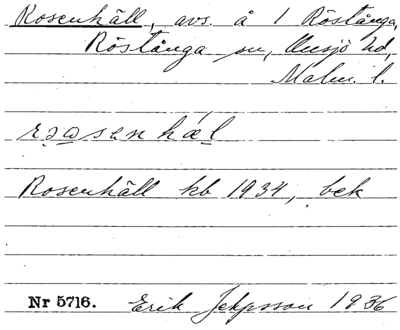 Rosenhäll, avs. å 1 Röstånga,
Röstånga sn, Onsjö hd,
Malm. l.
Rosenhäll kb 1934, bek
Nr 5716. Erik Jeppsson 1936